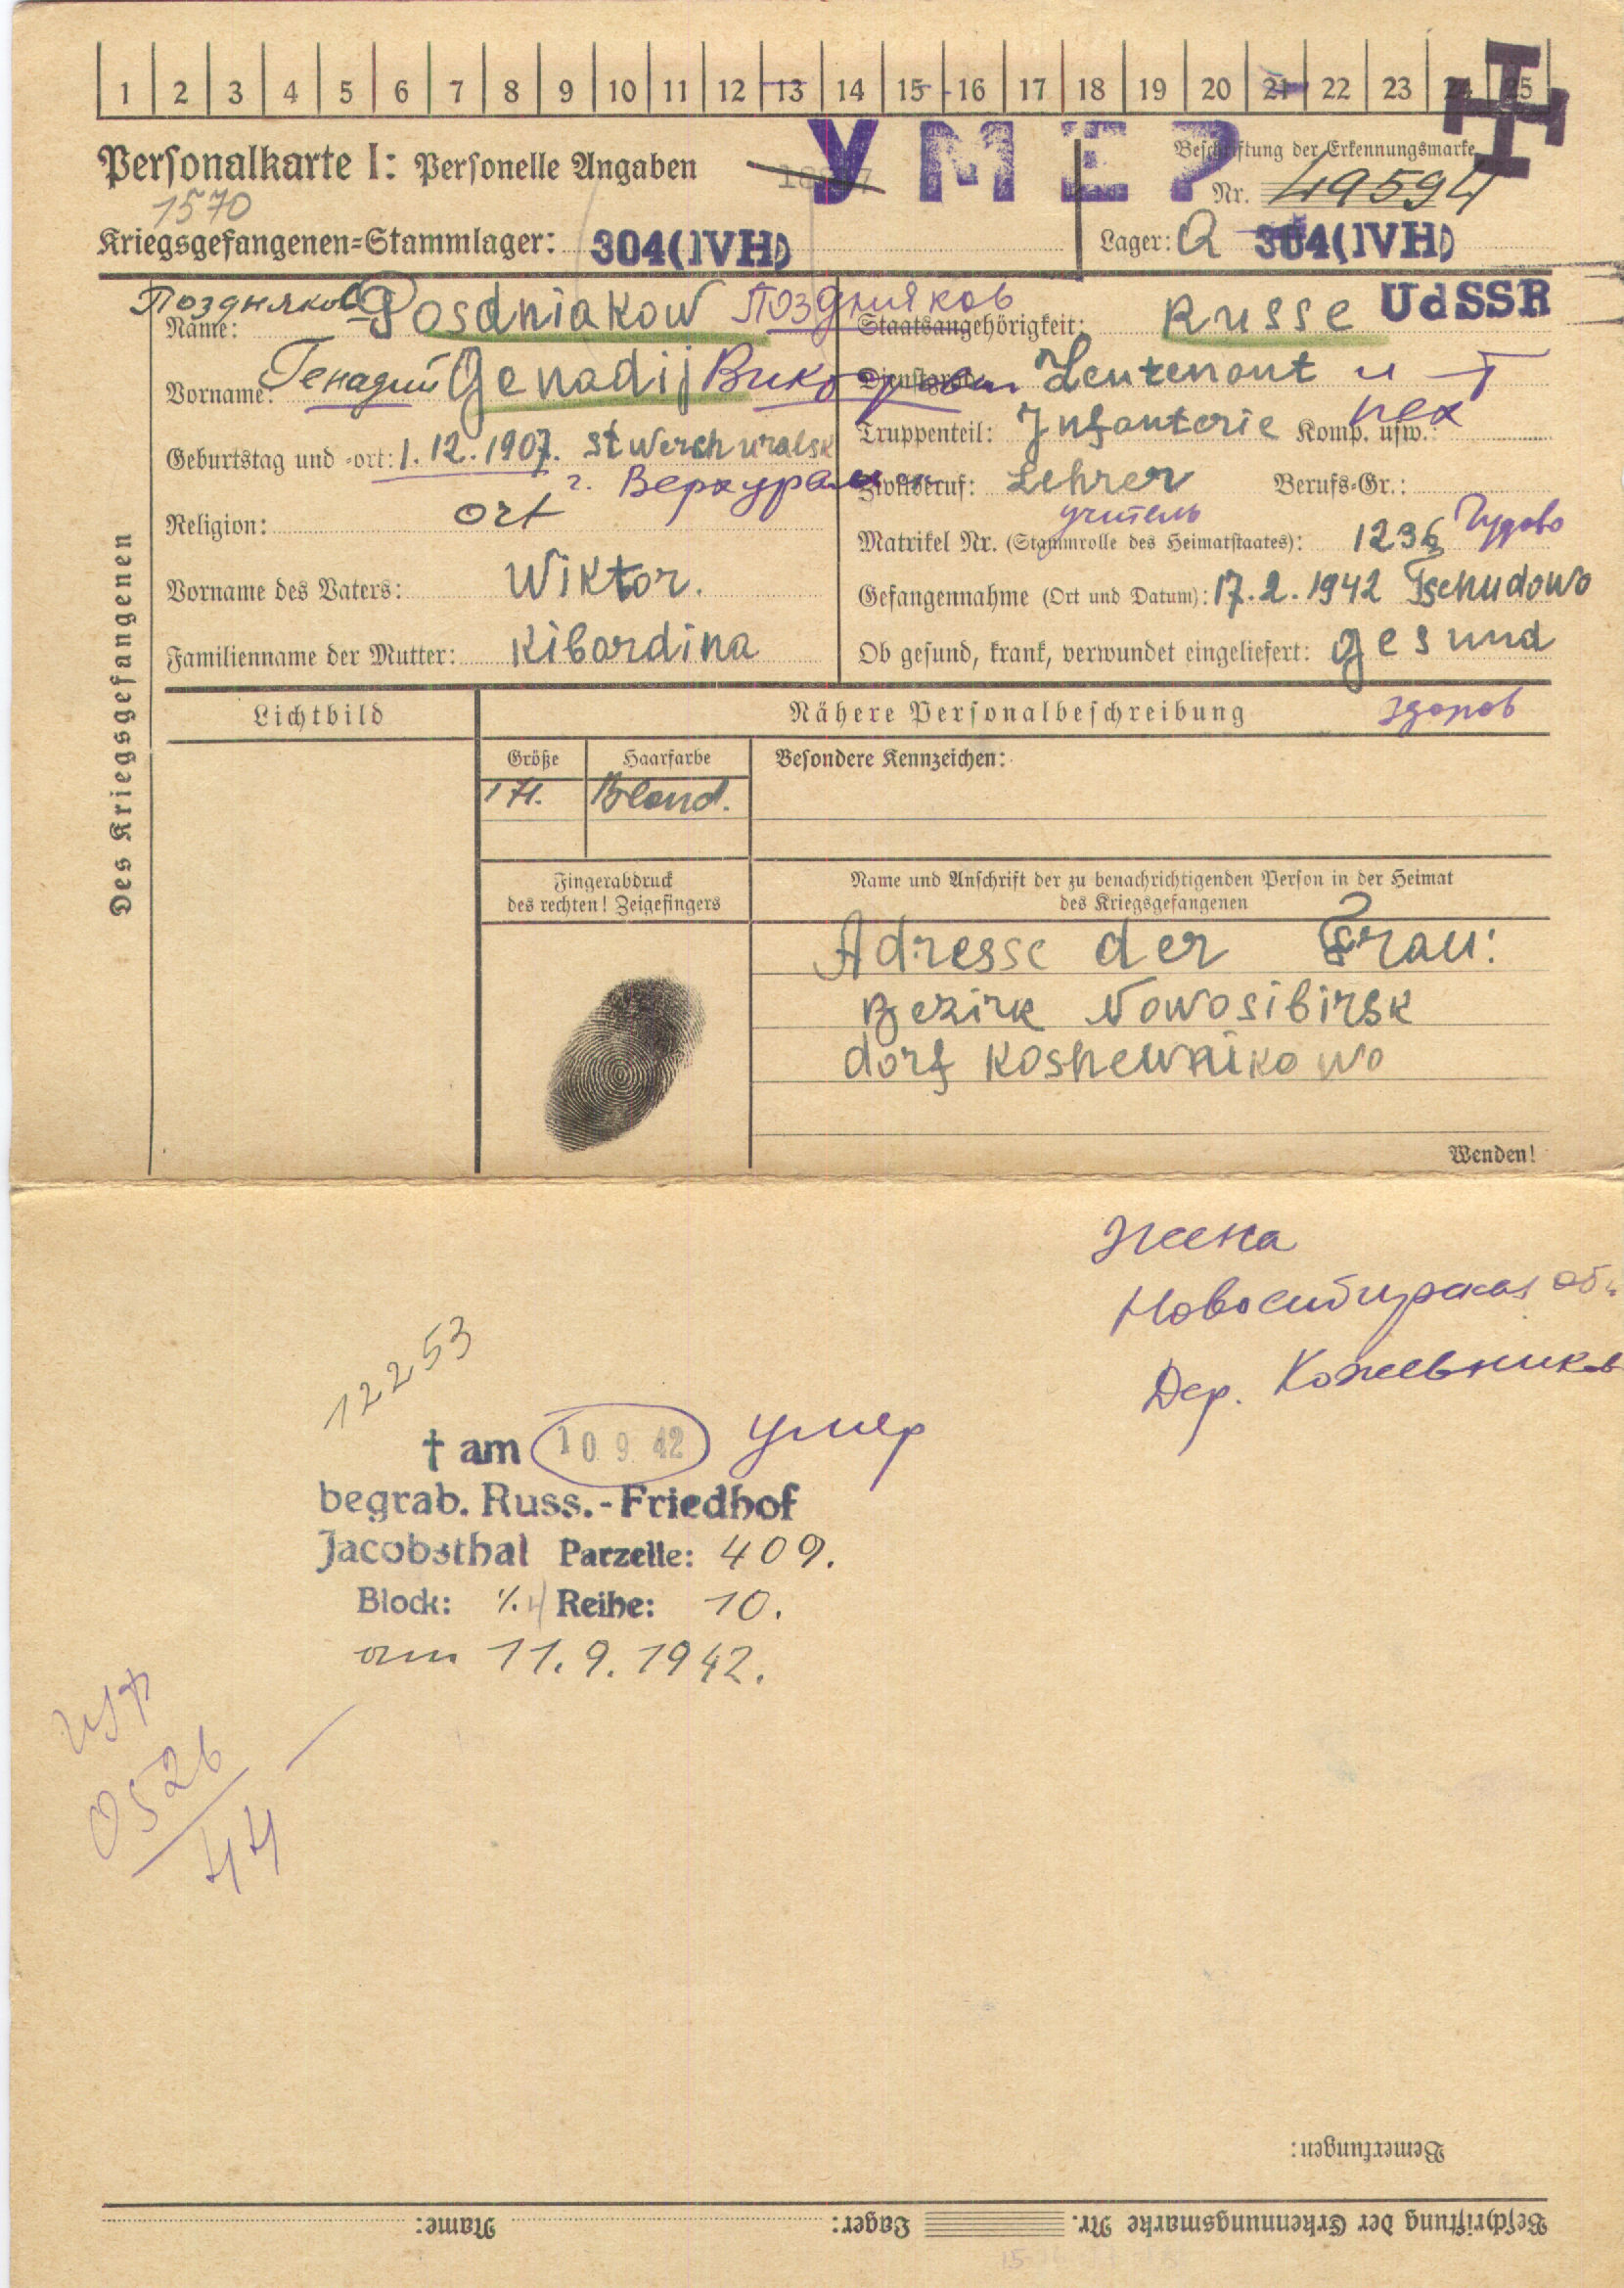 1 2 3 4 5 6 7 8 9 10 11 12 13 14 15 16 17 18 19 20 21 22 23 24 25
Personalkarte I: Personelle Angaben
УМЕР
Beschriftung der Erkennungsmarke
Nr. 49594
1570
Kriegsgefangenen-Stammlager: 304(IVH)
Lager: 304(IVH)
Des Kriegsgefangenen
Поздняков
Name: Posdniakow Поздняков
Staatsangehörigkeit: Russe UdSSR
Vorname: Генадий Genadij Викторович
Dienstgrad: Leutenant
Truppenteil: Infanterie Komp. usw.:
пех
Geburtstag und -ort: 1.12.1907. St Werchuralsk
г. Верхуральск
Zivilberuf: Lehrer Berufs-Gr.:
учитель
Religion: ort
Matrikel Nr. (Stammrolle des Heimatstaates): 1236 Чудово
Vorname des Vaters: Wiktor.
Gefangennahme (Ort und Datum): 17.2.1942 Tschudowo
Familienname der Mutter: Kibardina
Ob gesund, krank, verwundet eingeliefert: gesund
здоров
Lichtbild
Nähere Personalbeschreibung
Größe
Haarfarbe
Besondere Kennzeichen:
171.
Blond.
Fingerabdruck
des rechten! Zeigefingers
Name und Anschrift der zu benachrichtigenden Person in der Heimat
des Kriegsgefangenen
Adresse der Frau:
Bezirk Nowosibirsk
dorf Koshewnikowo
Wenden!
жена
Новосибирская обл
Дер. Кожевниково
12253
† am 10.9.42 умер
begrab. Russ.-Friedhof
Jacobsthal Parzelle: 409.
Block: Reihe: 10.
am 11.9.1942.
0526
44
Bemerkungen:
Beschriftung der Erkennungsmarke Nr. Lager: Name: